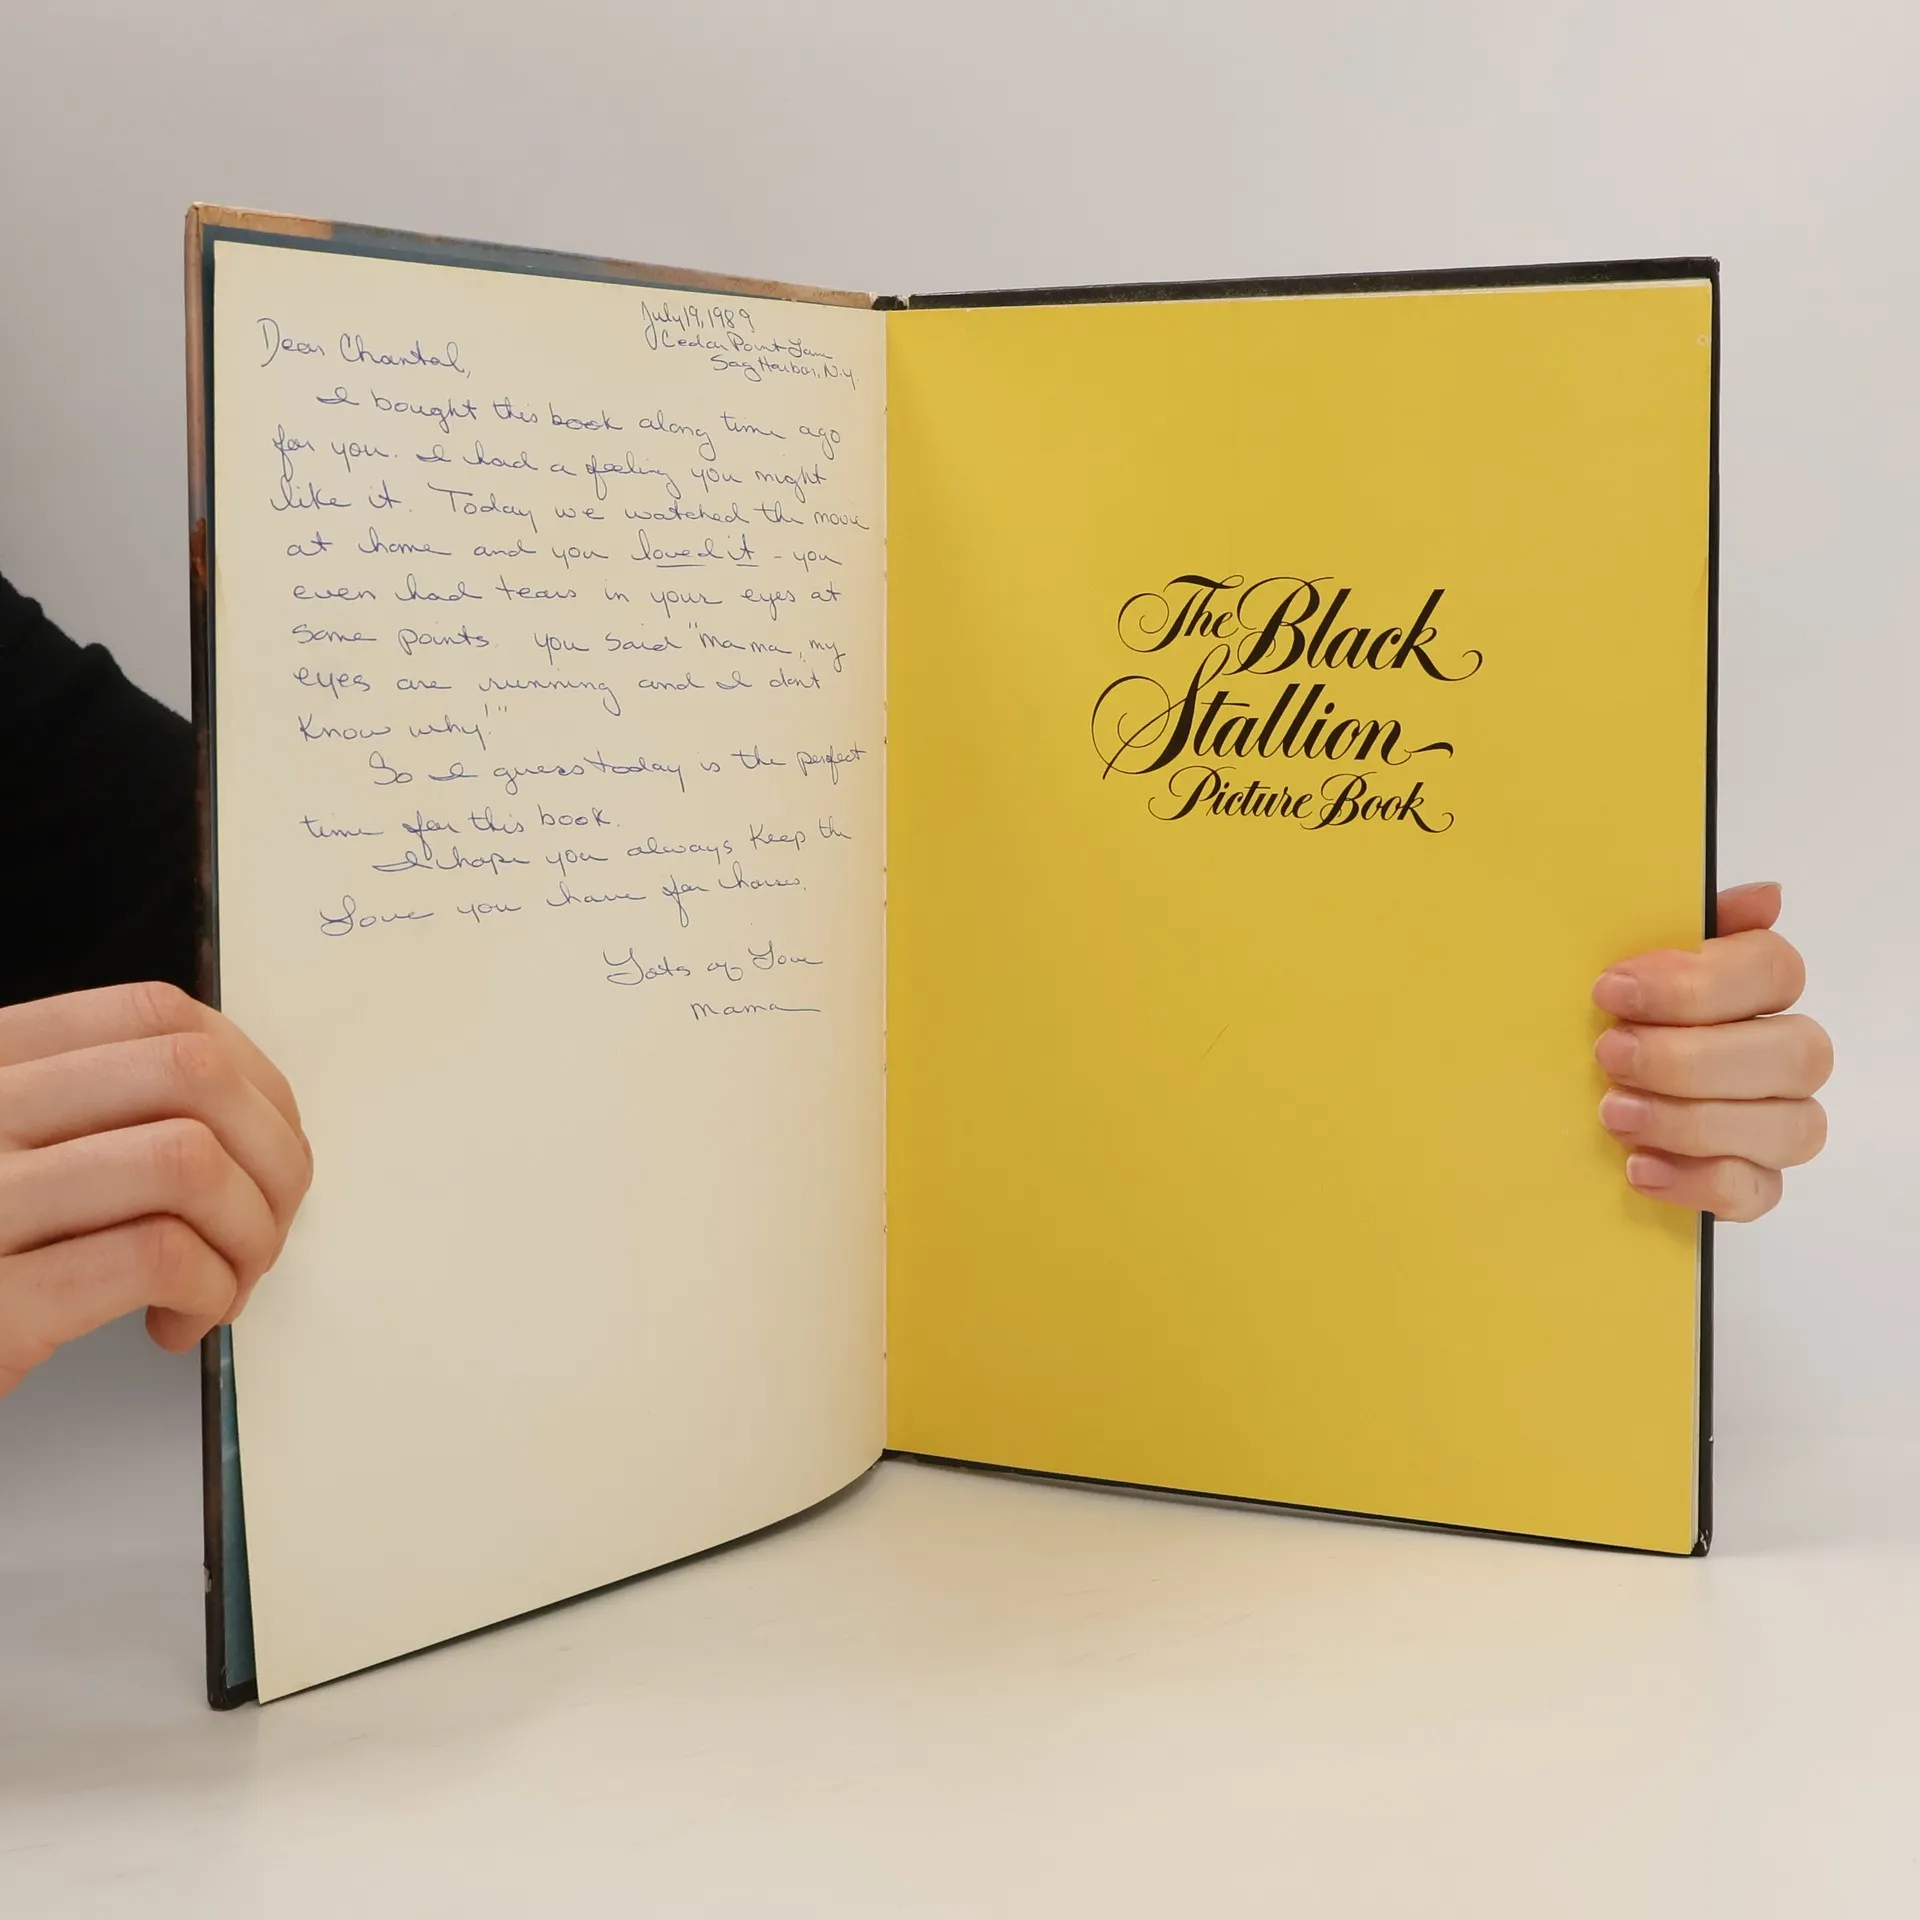 July 19, 1989
Cedar Point Lane
Sag Harbor, N.Y.
Dear Chantal,
I bought this book along time ago
for you. I had a feeling you might
like it. Today we watched the movie
at home and you loved it - you
even had tears in your eyes at
some points. you said "Mama, my
eyes are running and I don't
know why!"
So I guess today is the perfect
time for this book.
I hope you always keep the
Love you have for horses.
Lots of Love
Mama
The Black
Stallion
Picture Book